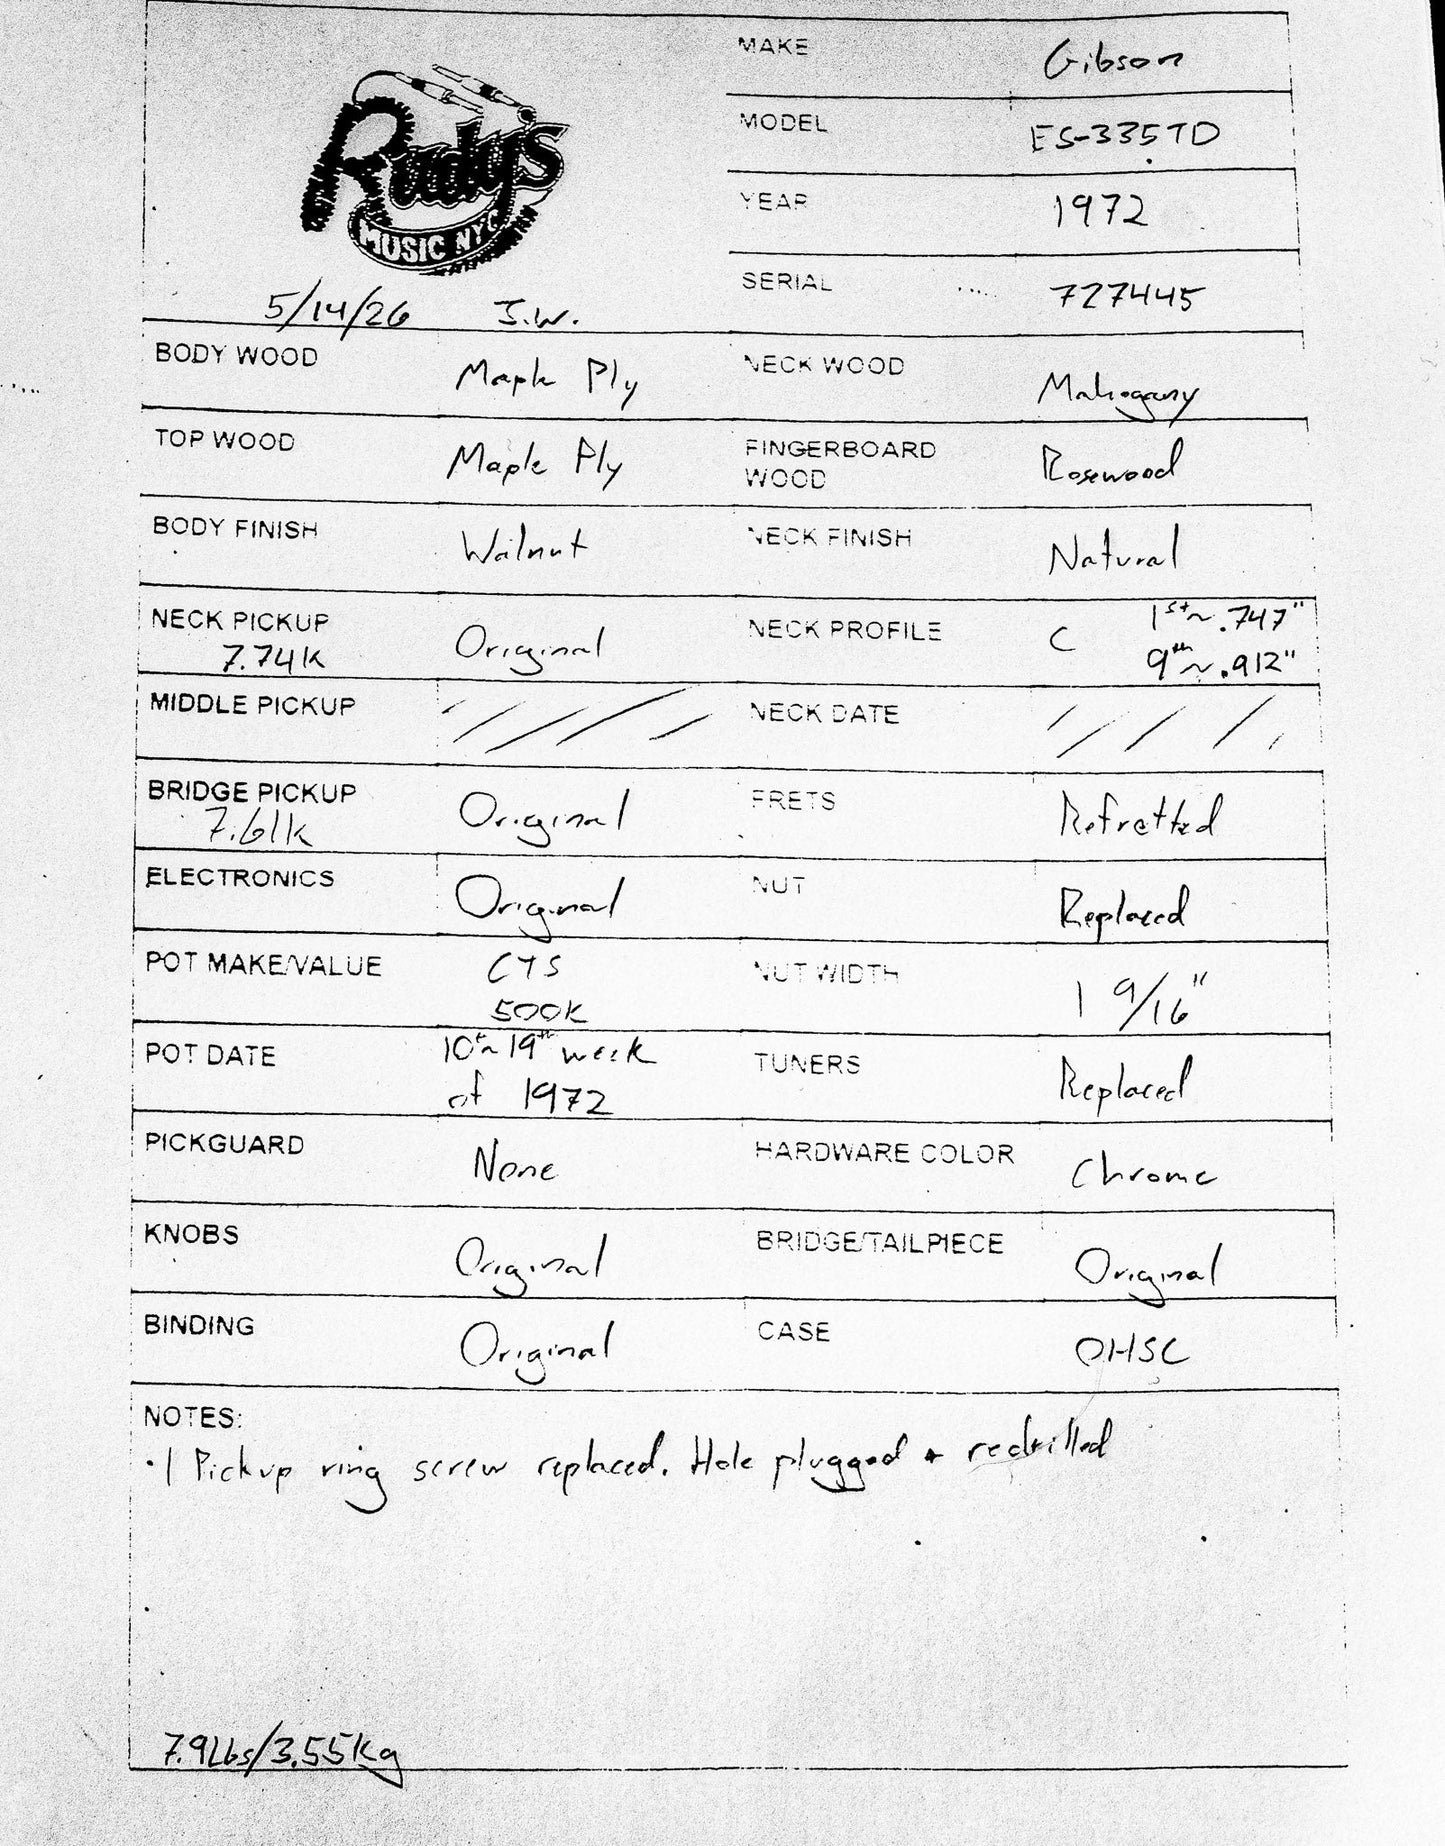 Rudy's
MUSIC NYC
5/14/26 J.W.
MAKE Gibson
MODEL ES-335TD
YEAR 1972
SERIAL 727445
BODY WOOD Maple Ply NECK WOOD Mahogany
TOP WOOD Maple Ply FINGERBOARD WOOD Rosewood
BODY FINISH Walnut NECK FINISH Natural
NECK PICKUP 7.74K Original NECK PROFILE C 1st~.747"
9th~.912"
MIDDLE PICKUP NECK DATE
BRIDGE PICKUP 7.61K Original FRETS Refretted
ELECTRONICS Original NUT Replaced
POT MAKE/VALUE CTS
500K
NUT WIDTH 1 9/16"
POT DATE 10th~19th week
of 1972
TUNERS Replaced
PICKGUARD None HARDWARE COLOR Chrome
KNOBS Original BRIDGE/TAILPIECE Original
BINDING Original CASE OHSC
NOTES:
·1 Pickup ring screw replaced. Hole plugged + redrilled
7.9Lbs/3.55Kg